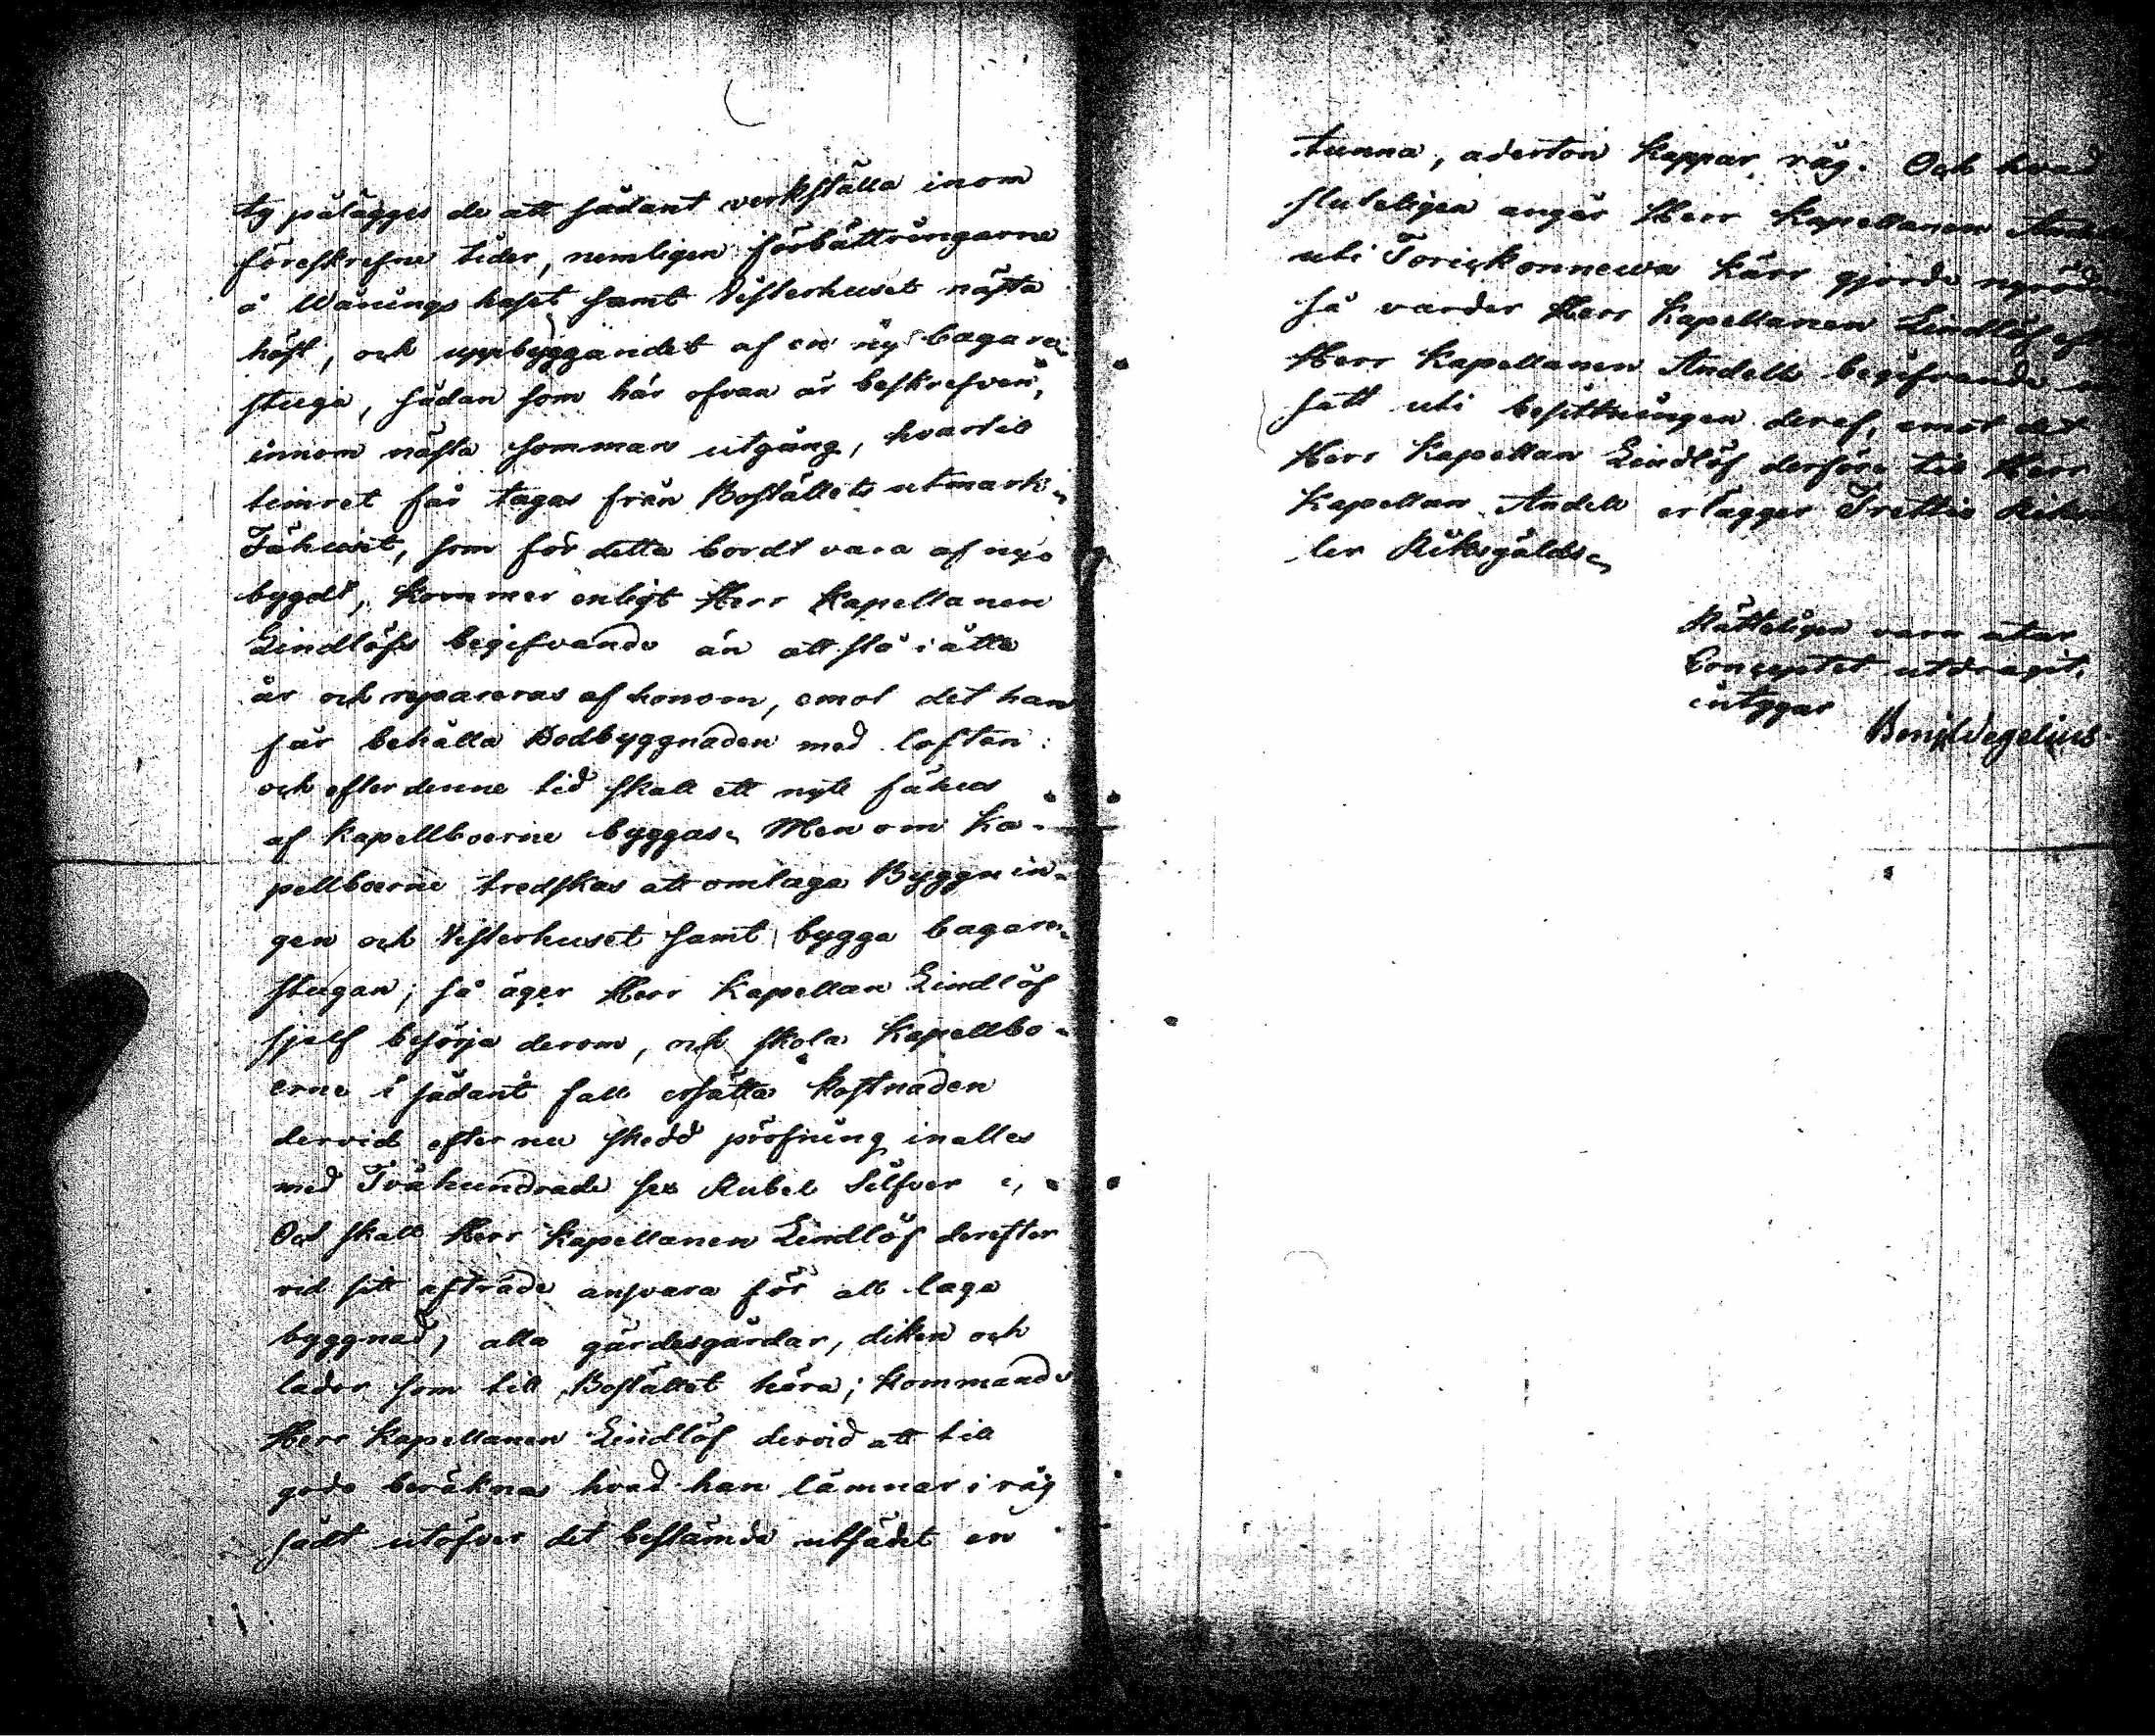 ty pålägges de att sådant verkställa inom
föreskrefne tider, nemligen förbättringarne
å Wånings huset samt Visterhuset nästa
höst, och uppbyggandet af en ny bagare
stuga, sådan som här ofvan är beskrefven,
innom nästa sommars utgång, hvartill
timret får tagas från Boställets utmark.
Fähuset, som för detta bordt vara af nyo
bygdt, kommer enligt Herr Kapellanen
Lindlöfs begifvande än att stå i åtta
år och repareras af honom, emot det han
får behålla Bodbyggnaden med loften:
och efter denne tid skall ett nytt fähus
af Kapellboerne byggas. Men om Ka-
pellboerne tredskas att omlaga Byggnin-
gen och Visterhuset samt bygga bagare-
stugan; så äger Herr Kapellan Lindlöf
sjelf besörja derom, och skola Kapellbo-
erne i sådant fall ersätta kostnaden
dervid efter nu skedd pröfning inalles
med Tvåhundrade sex Rubel Silfver,
Och skall Herr Kapellanen Lindlöf derefter
vid sitt afträde ansvara för all laga
byggnad, alla gärdesgårdar, diken och
lador som till Bostället höra; kommande
Herr Kapellanen Lindlöf dervid att till
godo beräknas hvad han lämnar i råg
sådt utöfver det bestämda utsädet en
tunna, aderton kappar råg. Och hvad
sluteligen angår Herr Kapellanen
uti kärr gjorde
så varder Herr Kapellanen Lindlöf
Herr Kapellanen Andells begifvande
satt uti besittningen deraf, emot det
Herr Kapellan Lindlöf derföre till Herr
Kapellan Andell erlägger Trettio
ler Riksgälds.
Rätteligen vara utur
Conceptet utdragit,
intygar
Benj. Wegelius.